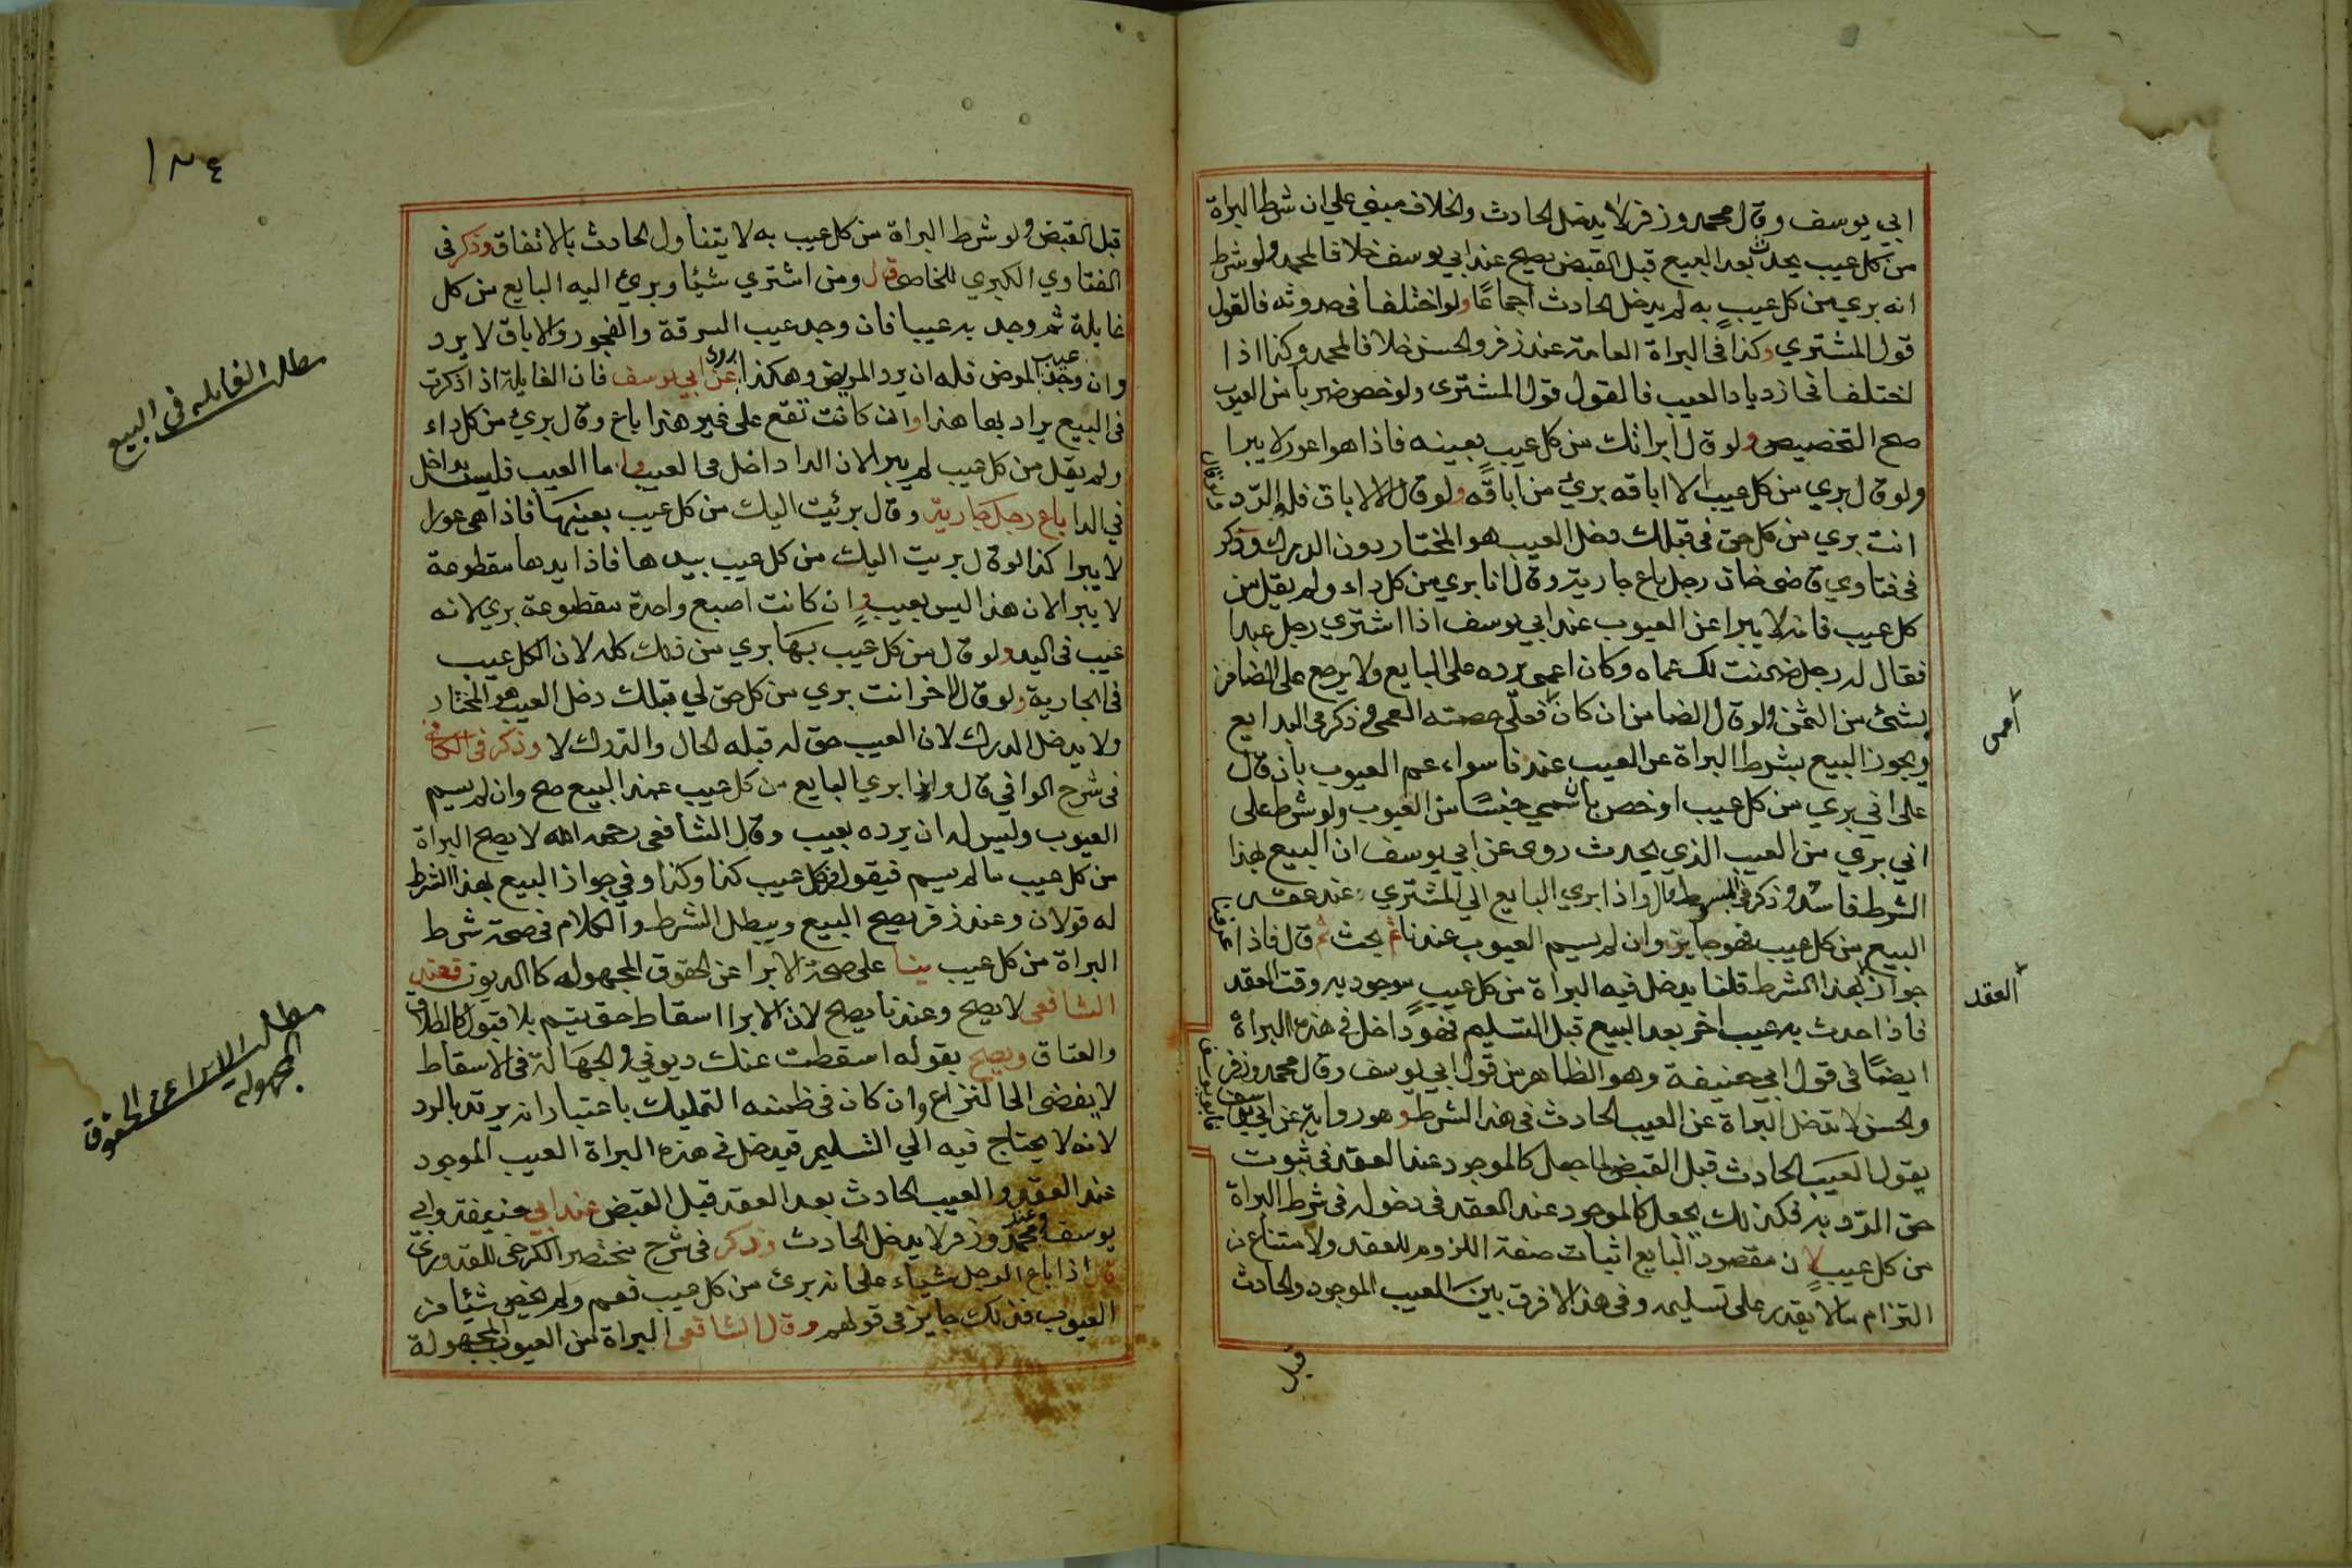 ابي يوسف وقال محمد وزفر لا يدخل الحادث والخلاف مبني علي ان شرط البراة
من كل عيب يحدث بعد البيع قبل القبض يصح عند ابي يوسف خلافا لمحمد ولو شرط
انه بري من كل عيب به لم يدخل الحادث اجماعا ولو اختلفا في حدوثه فالقول
قول المشتري وكذا في البراة العامة عند زفر والحسن خلافا لمحمد وكذا اذا
اختلفا في ازدياد العيب فالقول قول المشتري ولو خص ضربا من العيوب
صح التخصيص ولو قال ابراتك من كل عيب بعينه فاذا هو اعور لا يبرا
ولو قال بري من كل عيب الا اباقه بري من اباقه ولو قال الا الاباق فله الرد
ولو قال
انت بري من كل حق في قبلك دخل العيب هو المختار دون الدرك وذكر
في فتاوي قاضي خان رجل باع جارية وقال انا بري من كل داء ولم يقل من
كل عيب فانه لا يبرا عن العيوب عند ابي يوسف اذا اشتري رجل عبدا
فقال له رجل ضمنت لك عماه وكان اعمي برده على البايع ولا يرجع على الضامن
اعمى
بشئ من الثمن ولو قال الضامن ان كان فعلي حصته العمي وذكر في البدايع
ويجوز البيع بشرط البراة عن العيب عندنا سواء عم العيوب بان قال
على اني بري من كل عيب او خص بان سمي جنسا من العيوب ولو شرط على
اني بري من العيب الذي يحدث روي عن ابي يوسف ان البيع بهذا
الشرط فاسد وذكر في المبسوط قال واذا بري البايع الي المشتري عند عقد
البيع من كل عيب فهو جايز وان لم يسم العيوب عندنا ثم بحث ثم قال فاذا
عرفنا
جواز بهذا الشرط قلنا يدخل فيه البراة من كل عيب موجود به وقت العقد
العقد
فاذا حدث به عيب اخر بعد البيع قبل التسليم فهو داخل في هذه البراة
ايضا في قول ابي حنيفة وهو الظاهر من قول ابي يوسف وقال محمد وزفر
والحسن لا تدخل البراة عن العيب الحادث في هذا الشرط وهو رواية عن ابي يوسف
فابو يوسف
يقول العيب الحادث قبل القبض لما جعل كالموجود عند العقد في ثبوت
حق الرد به فكذلك يجعل كالموجود عند العقد في دخوله في شرط البراة
من كل عيب لان مقصود البايع اثبات صفة اللزوم للعقد والامتناع من
التزام ما لا يقدر على تسليمه وفي هذا لا فرق بين العيب الموجود والحادث
قبل
١٣٤
قبل القبض ولو شرط البراة من كل عيب به لا يتناول الحادث بالاتفاق وذكر في
الفتاوي الكبري للخاصي قال ومن اشتري شيئا وبرئ اليه البايع من كل
غايلة ثم وجد به عيبا فان وجد عيب السرقة والفجور والاباق لا يرد
مطلب الغايلة في البيع
وان وجد عيب المرض فله ان يرد المريض وهكذا روي عن ابي يوسف فان الغايلة اذا ذكرت
في البيع يراد بها هذا وان كانت تقع على غير هذا باع وقال برئ من كل داء
ولم يقل من كل عيب لم يبرا لان الدا داخل في العيب واما العيب فليس بداخل
في الدا باع رجل جارية وقال برئت اليك من كل عيب بعينها فاذا هي عورا
لا يبرا كذا لو قال بريت اليك من كل عيب بيدها فاذا يدها مقطوعة
لا يبرا لان هذا ليس بعيب وان كانت اصبع واحدة مقطوعة بري لانه
عيب في اليد ولو قال من كل عيب بها بري من ذلك كله لان الكل عيب
في الجارية ولو قال لاخر انت بري من كل حق لي قبلك دخل العيب هو المختار
ولا يدخل الدرك لان العيب حق له قبله الحال والدرك لا وذكر في الكافي
في شرح الوافي قال واذا بري البايع من كل عيب عند البيع صح وان لم يسم
العيوب وليس له ان يرده بعيب وقال الشافعي رحمه الله لا يصح البراة
من كل عيب ما لم يسم فيقول من كل عيب كذا وكذا وفي جواز البيع بهذا الشرط
له قولان وعند زفر يصح البيع ويبطل الشرط والكلام في صحة شرط
البراة من كل عيب بنا على صحة الابرا عن الحقوق المجهولة كالديون فعند
الشافعي لا يصح وعندنا يصح لان الابرا اسقاط حق يتم بلا قبول كالطلاق
مطلب الابرا عن الحقوق
المجهولة
والعتاق ويصح بقوله اسقطت عنك ديوني والجهالة في الاسقاط
لا يفضي الى النزاع وان كان في ضمنه التمليك باعتبار انه يرتد بالرد
لانه لا يحتاج فيه الي التسليم فيدخل في هذه البراة العيب الموجود
عند العقد والعيب الحادث بعد العقد قبل القبض عند ابي حنيفة وابي
يوسف وعند محمد وزفر لا يدخل الحادث وذكر في شرح مختصر الكرخي للقدوري
قال اذا باع الرجل شياء على انه برئ من كل عيب فعم ولم يخص شيئا من
العيوب فذلك جايز في قولهم وقال الشافعي البراة من العيوب المجهولة